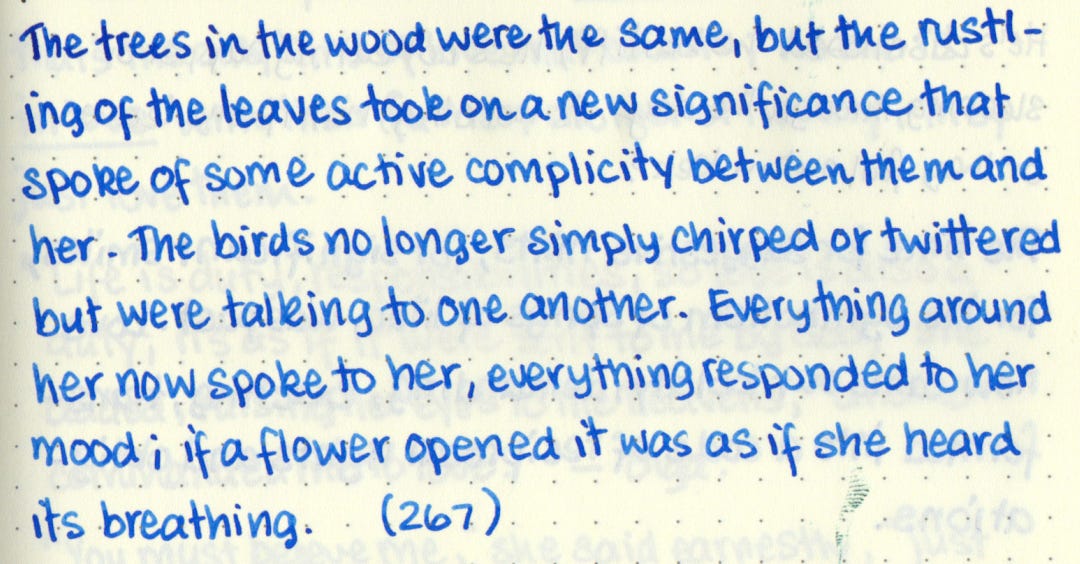 The trees in the wood were the same, but the rustl-
ing of the leaves took on a new significance that
spoke of some active complicity between them and
her. The birds no longer simply chirped or twittered
but were talking to one another. Everything around
her now spoke to her, everything responded to her
mood; if a flower opened it was as if she heard
its breathing. (267)